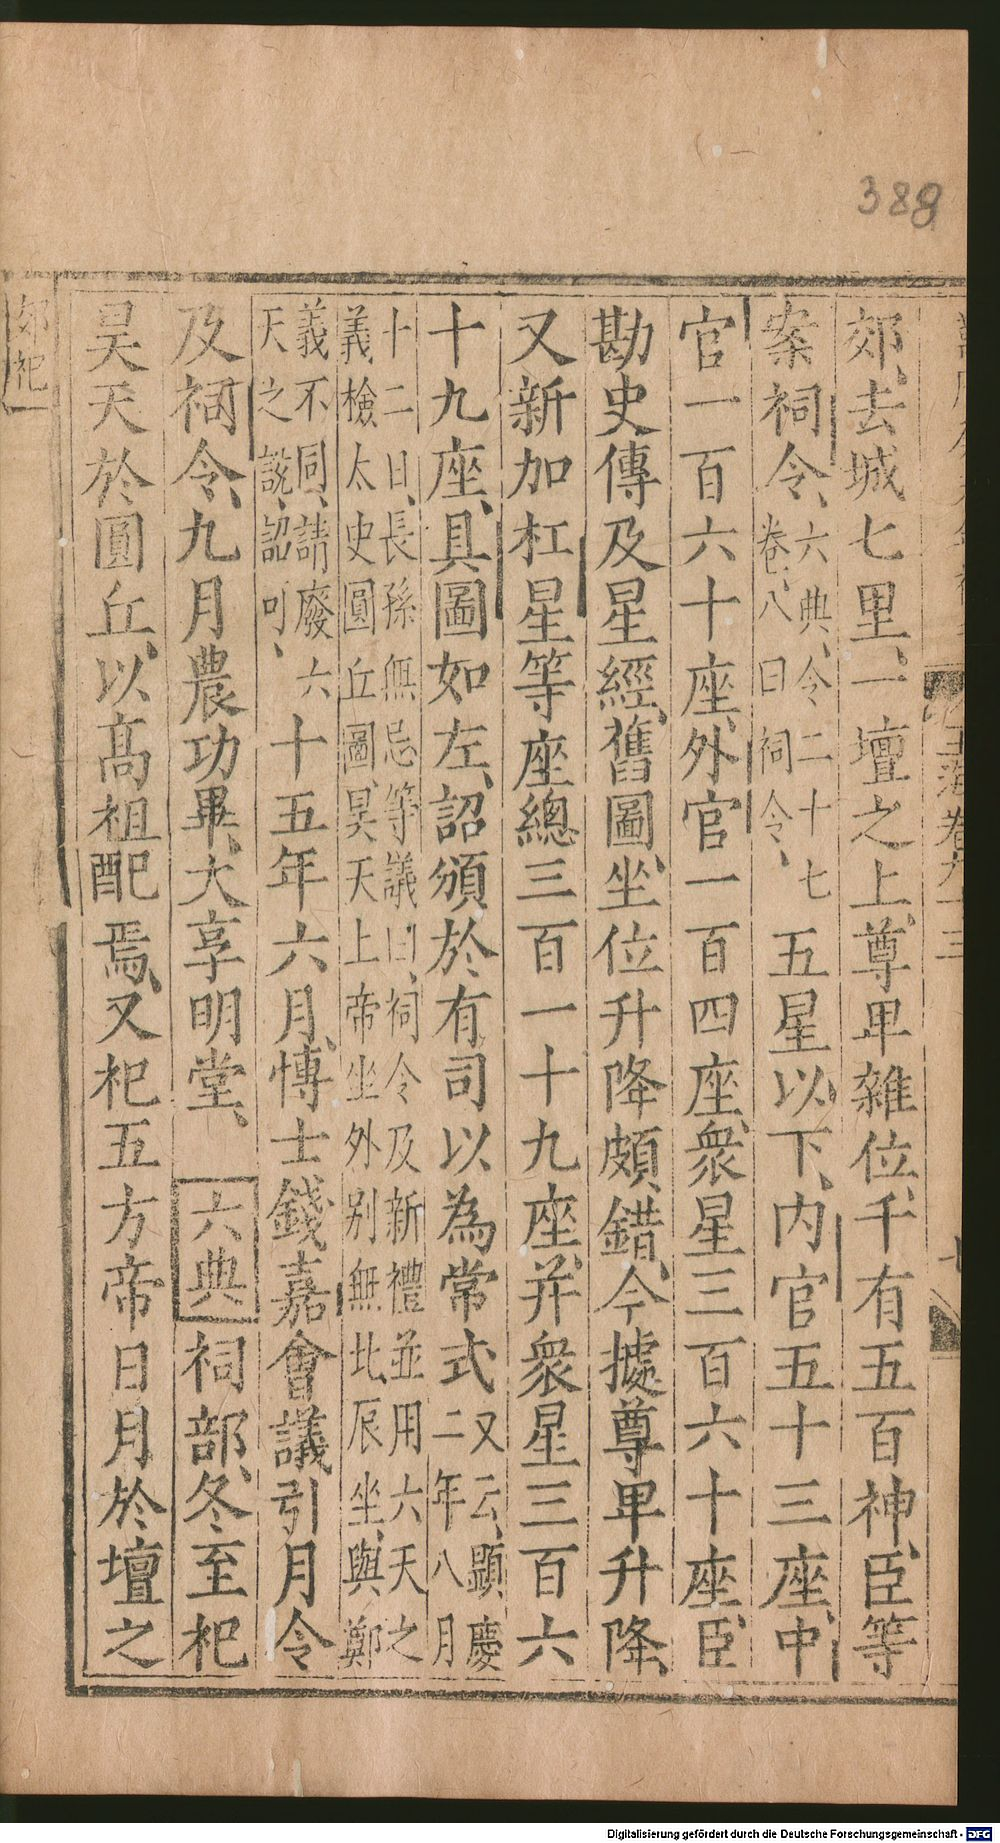 388
郊、去城七里、一壇之上、尊卑雜位、千有五百神、臣等
案祠令、六典、令二十七
卷、八曰祠令、
五星以下、內官五十三座、中
官一百六十座、外官一百四座、衆星三百六十座、臣
勘史傳及星經、舊圖、坐位升降頗錯、今據尊卑升降、
又新加杠星等座總三百一十九座、幷衆星三百六
十九座、具圖如左、詔頒於有司以為常式又云、顯慶
二年八月
十二日、長孫無忌等議曰、祠令及新禮並用六天之
義、檢太史圓丘圖、昊天上帝坐外別無北辰坐、與鄭
義不同、請廢六
天之說、詔可、
十五年六月、博士錢嘉會議引月令
及祠令、九月農功畢、大享明堂、六典祠部、冬至祀
昊天於圓丘、以高祖配焉、又祀五方帝日月於壇之
郊祀
玉海卷九十三
Digitalisierung gefördert durch die Deutsche Forschungsgemeinschaft - DFG